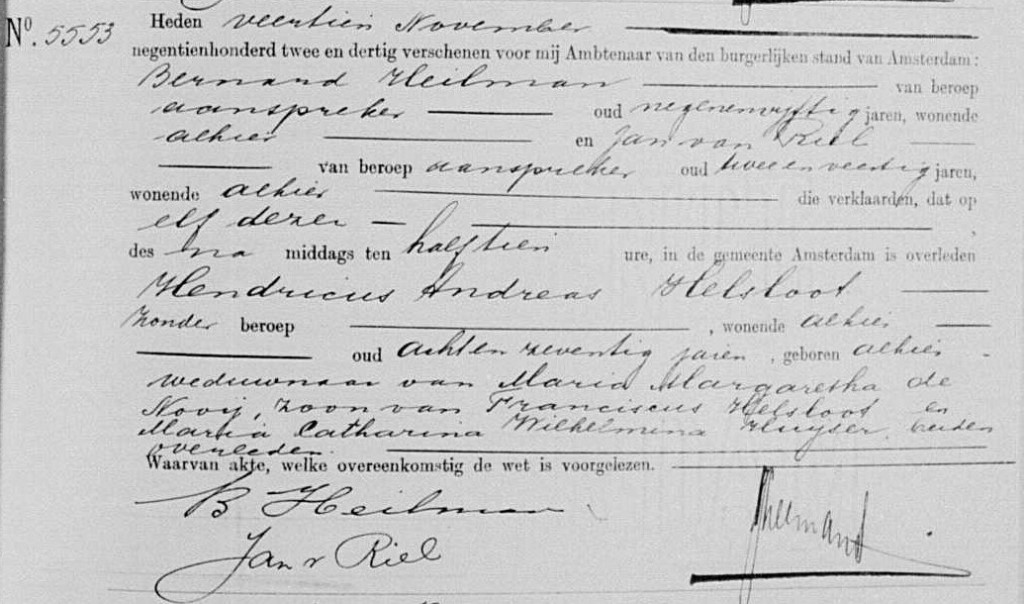 No. 5553 Heden veertien November
negentienhonderd twee en dertig verschenen voor mij Ambtenaar van den burgerlijken stand van Amsterdam:
Bernard Heilman van beroep
aanspreker oud negenenvijftig jaren, wonende
alhier en Jan van Riel
van beroep aanspreker oud twee en veertig jaren,
wonende alhier die verklaarden, dat op
elf dezer
des na middags ten half tien ure, in de gemeente Amsterdam is overleden
Hendricus Andreas Helsloot
zonder beroep , wonende alhier
oud acht en zeventig jaren , geboren alhier
weduwnaar van Maria Margaretha de
Nooij, zoon van Franciscus Helsloot en
Maria Catharina Wilhelmina Huyser, beiden
overleden.
Waarvan akte, welke overeenkomstig de wet is voorgelezen.
B Heilman
Jan v Riel